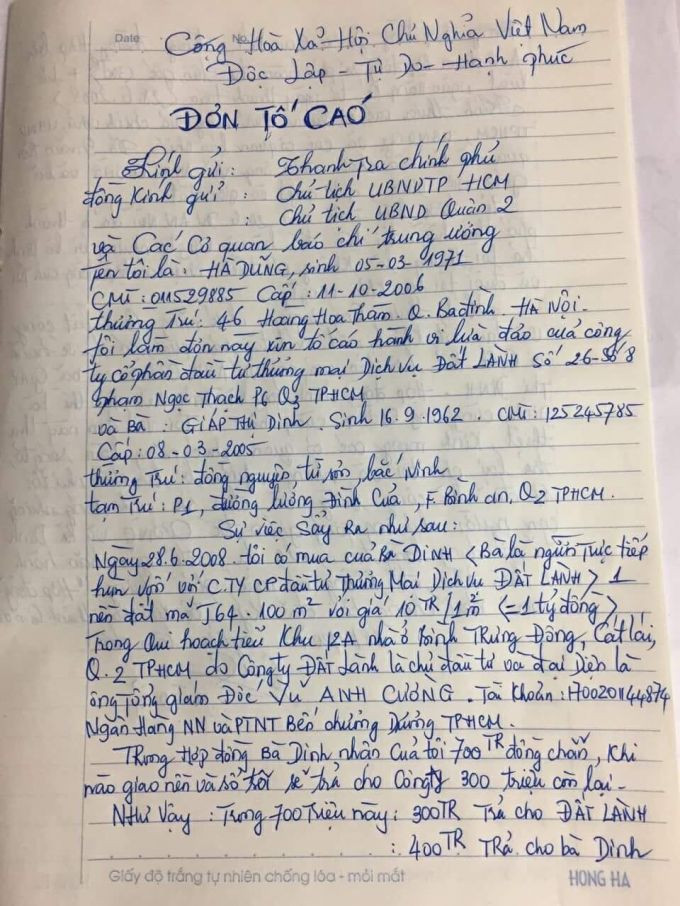 Date No.
Cộng Hoà Xả Hội Chủ Nghỉa Việt Nam
Độc Lập - Tự Do - Hạnh phúc
ĐƠN TỐ CAÓ
Kính gửi : Thanh Tra chính phủ
đồng Kính gửi : Chủ tịch UBNDTP HCM
: Chủ tịch UBND Quận 2
và Các Cơ quan báo chí trung ương
Tên tôi là : HÀ DŨNG, sinh 05-03-1971
CMT : 011529885 Cấp : 11-10-2006
thường Trú : 46 Hoàng Hoa Thám. Q. Ba đình - HÀ NỘI.
tôi làm đơn này xin tố cáo hành vi lừa đảo của công
ty cổ phần đầu tư thương mại Dịch vụ ĐẤT LÀNH Số 26-Số 8
phạm Ngọc Thạch P6 Q3 TPHCM
và Bà : GIÁP THỊ Dinh, Sinh 16.9.1962. CMT : 125245785
Cấp : 08-03-2005
thường Trú : đồng nguyên, từ sơn, bắc Ninh
tạm Trú : P1, đường lương Đình Của, F. Bình an, Q2 TPHCM.
Sự việc Sảy Ra như sau :
Ngày 28.6.2008. tôi có mua của Bà DINH < Bà là người Trực tiếp
hụn vốn với CTY CP đầu tư Thương Mại Dịch vụ ĐẤT LÀNH > 1
nền đất mã J64. 100 m² với giá 10 TR/1m² (= 1 tỷ đồng)
Trong Qui hoạch tiểu Khu 12A nhà ở Bình Trưng Đông, Cát lái,
Q.2 TPHCM do Công ty ĐẤT Lành là chủ đầu tư và đại Diện là
ông Tổng giám Đốc VŨ ANH CƯỜNG. Tài Khoản : 1700201144874
Ngân Hàng NN và PTNT Bến chương Dương TPHCM.
Trong Hợp đồng Bà Dinh nhận Của tôi 700 TR đồng chẵn, Khi
nào giao nền và sổ tôi sẽ trả cho Công ty 300 triệu còn lại -
NHư Vậy : Trong 700 Triệu này : 300 TR Trả cho ĐẤT LÀNH
: 400 TR TRả cho bà Dinh
Giấy độ trắng tự nhiên chống lóa - mỏi mắt HONG HA